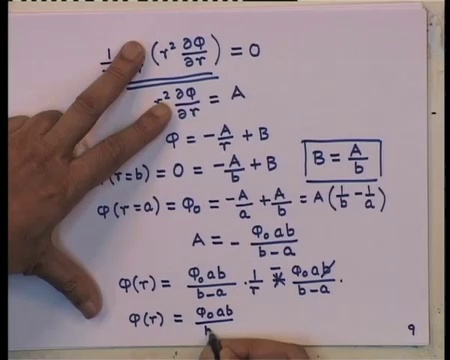 1 (r² ∂φ/∂r) = 0
r² ∂φ/∂r = A
φ = -A/r + B
(r=b) = 0 = -A/b + B   B = A/b
φ(r=a) = φ₀ = -A/a + A/b = A(1/b - 1/a)
A = - φ₀ab/(b-a)
φ(r) = φ₀ab/(b-a) · 1/r - φ₀ab/(b-a) ·
φ(r) = φ₀ab/b
9